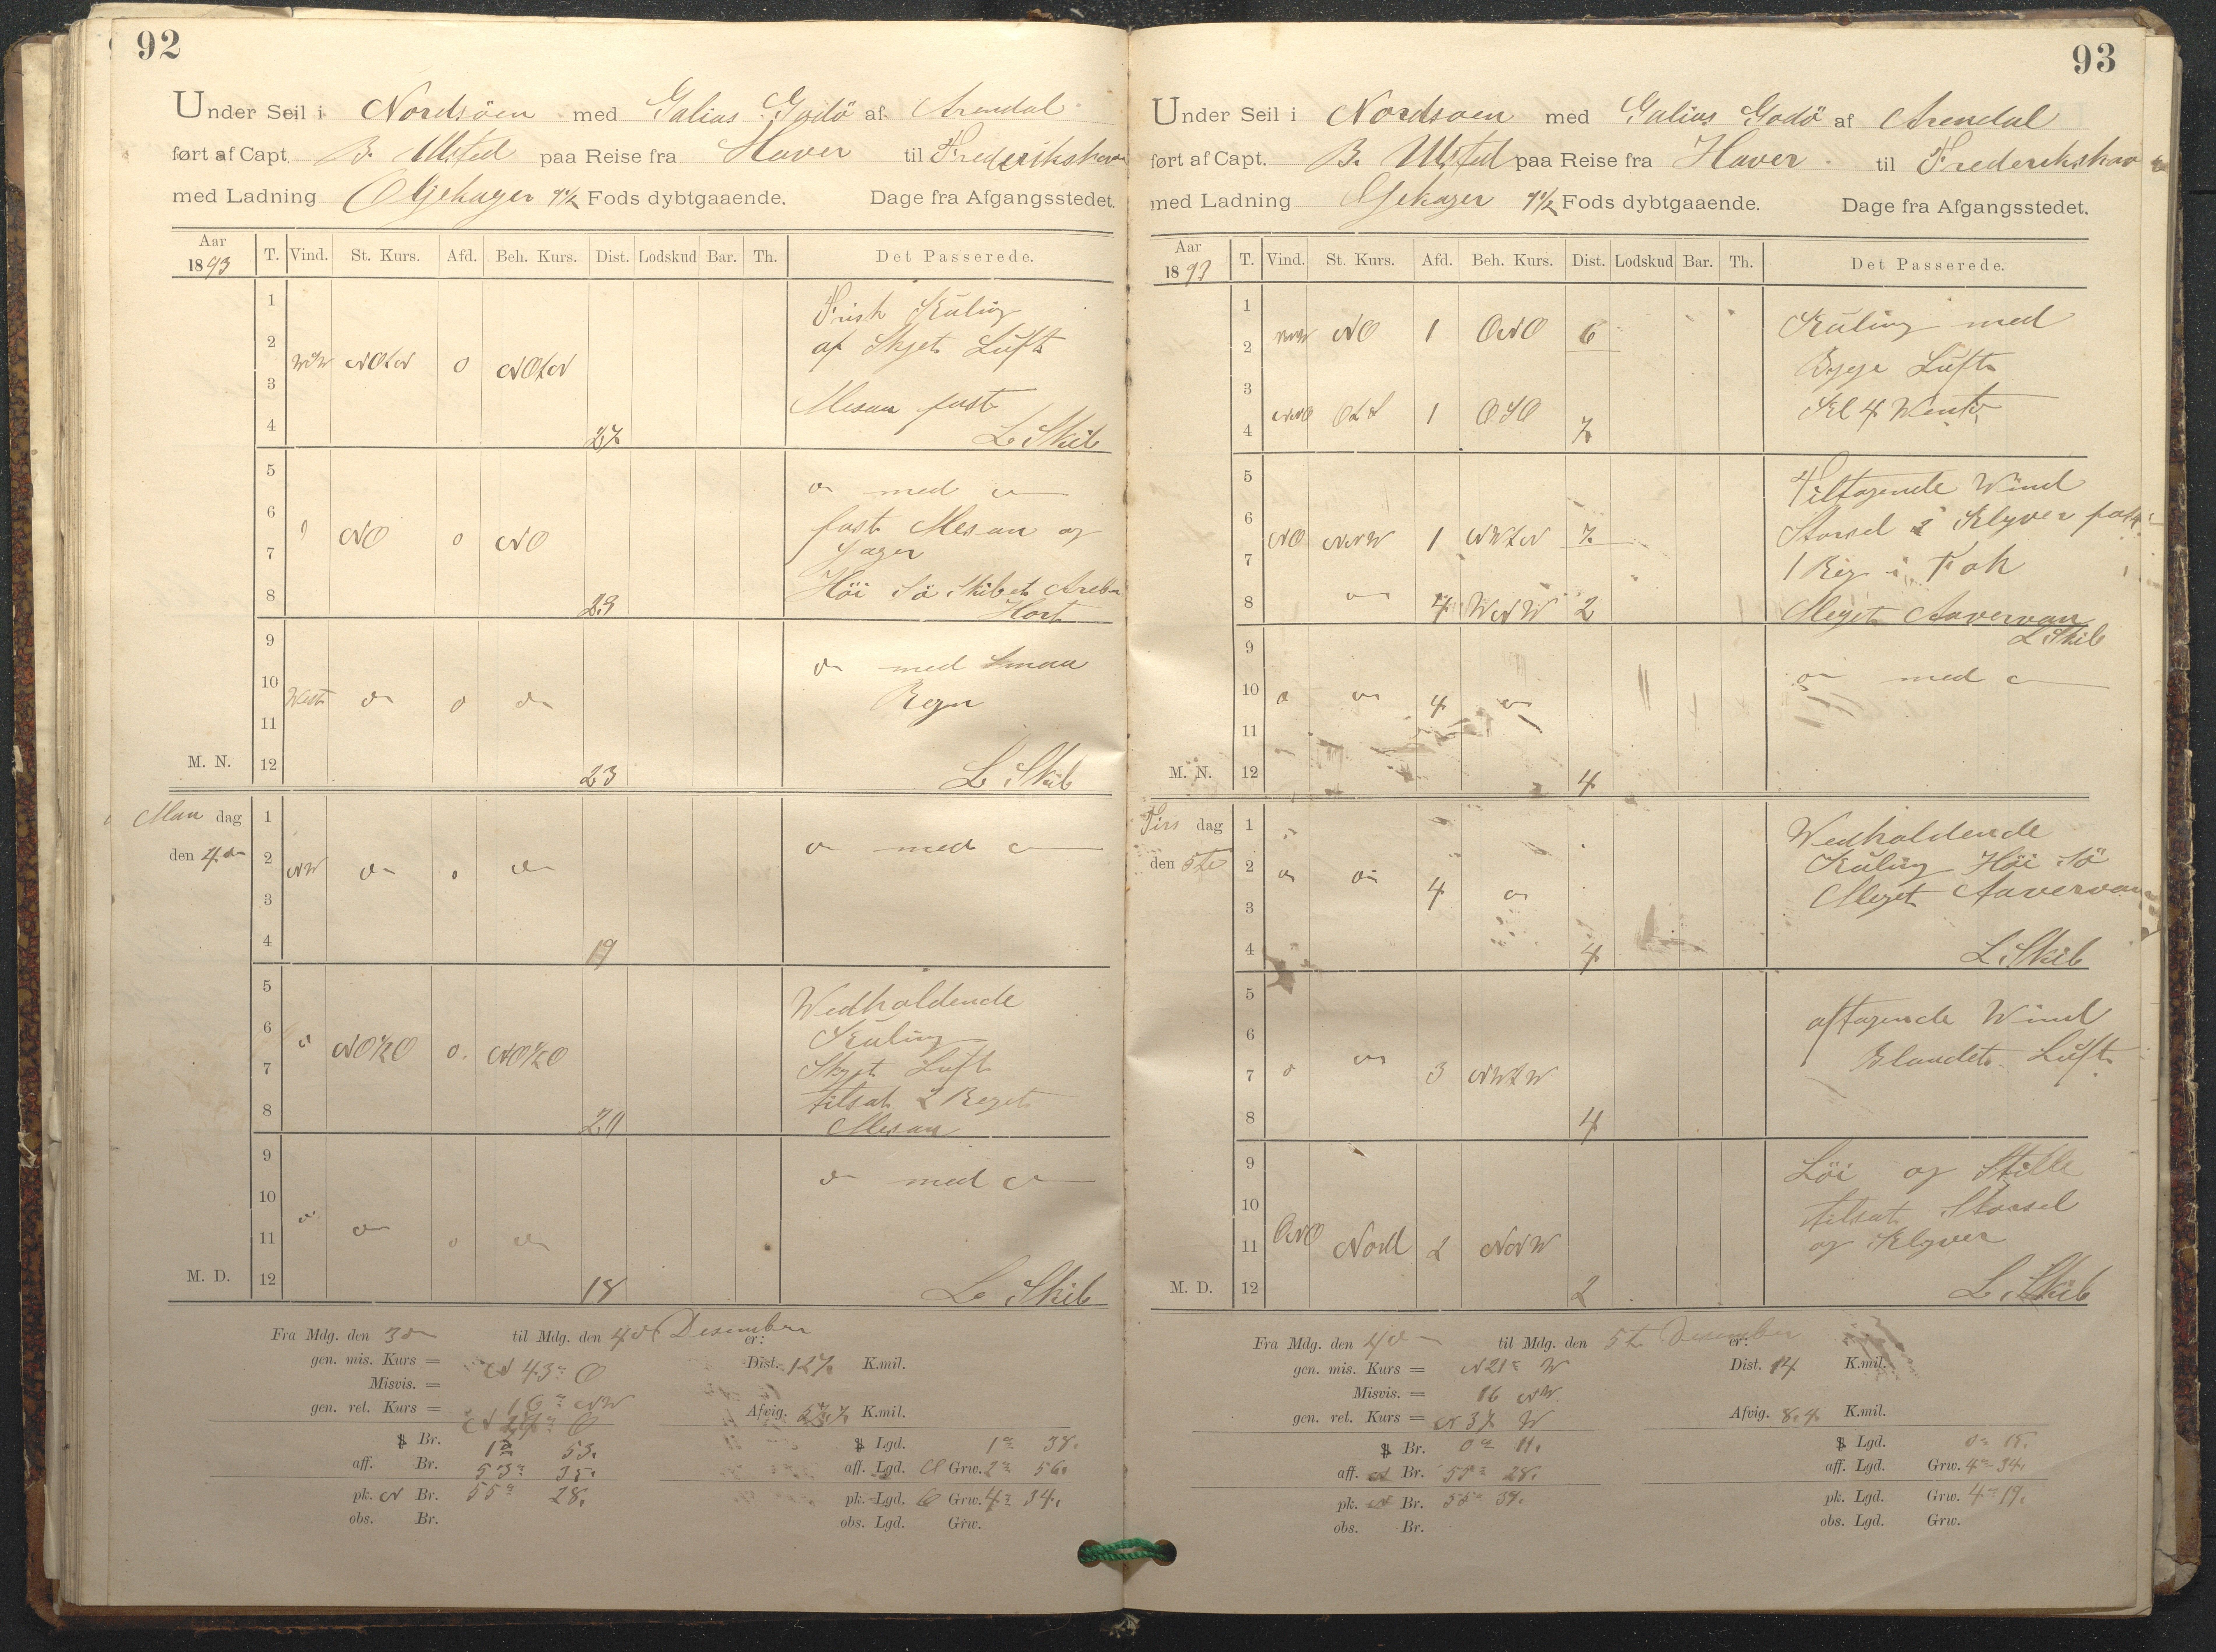 92
Under Seil i Nordsöen med Galias Godö af Arendal
ført af Capt. B. Ulsted paa Reise fra Haver til Frederikshavn
med Ladning Oljekager 9½ Fods dybtgaaende. Dage fra Afgangsstedet.
Aar 1893 T. Vind. St. Kurs. Afd. Beh. Kurs. Dist. Lodskud Bar. Th. Det Passerede.
1 Frisk Kuling
2 af Skyet Luft
WNW NOtN 0 NOtN
3 Mesan fast
4 27 L Skib
5 do med do
6 fast Mesan og
do NO 0 NO
7 Jager
8 23 Höi Sö Skibet Areb
Hort
9 do med Smaa
10 West do 0 do Regn
11
M. N. 12 23 L Skib
Man dag 1
den 4de 2 NW do 0 do do med do
3
4 19
5 Wedholdende
6 Kuling
do NO½O 0. NO½O
7 Skyet Luft
8 20 tilsat 2 Reget
Mesan
9 do med do
10
do do 0 do
11
M. D. 12 18 L Skib
Fra Mdg. den 3de til Mdg. den 4de Desember er:
gen. mis. Kurs = N 43° O Dist. 127 K.mil.
Misvis. = 16° NW
gen. ret. Kurs = N 27° O Afvig. 57.7 K.mil.
Br. 1° 53. Lgd. 1° 38.
aff. Br. 53° 35. aff. Lgd. O Grw. 2° 56.
pk. N Br. 55° 28. pk. Lgd. O Grw. 4° 34.
obs. Br. obs. Lgd. Grw.
93
Under Seil i Nordsoen med Galias Godö af Arendal
ført af Capt. B. Ulsted paa Reise fra Haver til Frederikshavn
med Ladning Oljekager 9½ Fods dybtgaaende. Dage fra Afgangsstedet.
Aar 1893 T. Vind. St. Kurs. Afd. Beh. Kurs. Dist. Lodskud Bar. Th. Det Passerede.
1 Kuling med
2 NNW NO 1 ONO 6 Byge Luft
3 Kl 4 Wente
4 NNO OtS 1 OSO 7
5 Tiltagende Wind
6 Storsel & Klyver fast
NO NNW 1 NWtN 7
7 1 Reg i Fok
8 do 4 WNW 2 Meget Aavervan
L Skib
9 do med do
10 do do 4 do
11
M. N. 12 4
Tirs dag 1 Wedholdende
den 5te 2 do do 4 do Kuling Höi Sö
3 Meget Aavervan
4 4 L. Skib
5 aftagende Wind
6 Blandet Luft
7 do do 3 NWtW
8 4
9 Löi og Stille
10 tilsat Storsel
11 ONO Nord 2 NNW og Klyver
M. D. 12 2 L. Skib
Fra Mdg. den 4de til Mdg. den 5te Desember er:
gen. mis. Kurs = N 21° W Dist. 14 K.mil.
Misvis. = 16 NW.
gen. ret. Kurs = N 37 W Afvig. 8.4 K.mil.
Br. 0° 11. Lgd. 0° 15.
aff. N Br. 55° 28. aff. Lgd. Grw. 4° 34.
pk. N Br. 55° 39. pk. Lgd. Grw. 4° 19.
obs. Br. obs. Lgd. Grw.